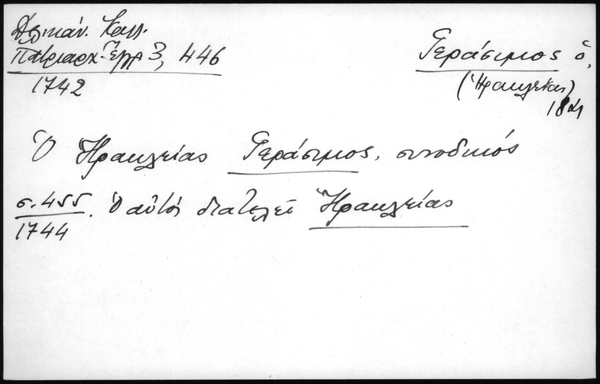 Δελικάν. Καλλ.
Πατριαρχ. Ἔγγρ 3, 446
1742
Γεράσιμος ὁ,
(Ἡρακλείας)
18 αἰ
Ὁ Ἡρακλείας Γεράσιμος, συνοδικός
σ. 455. Ὁ αὐτός διατελεῖ Ἡρακλείας
1744